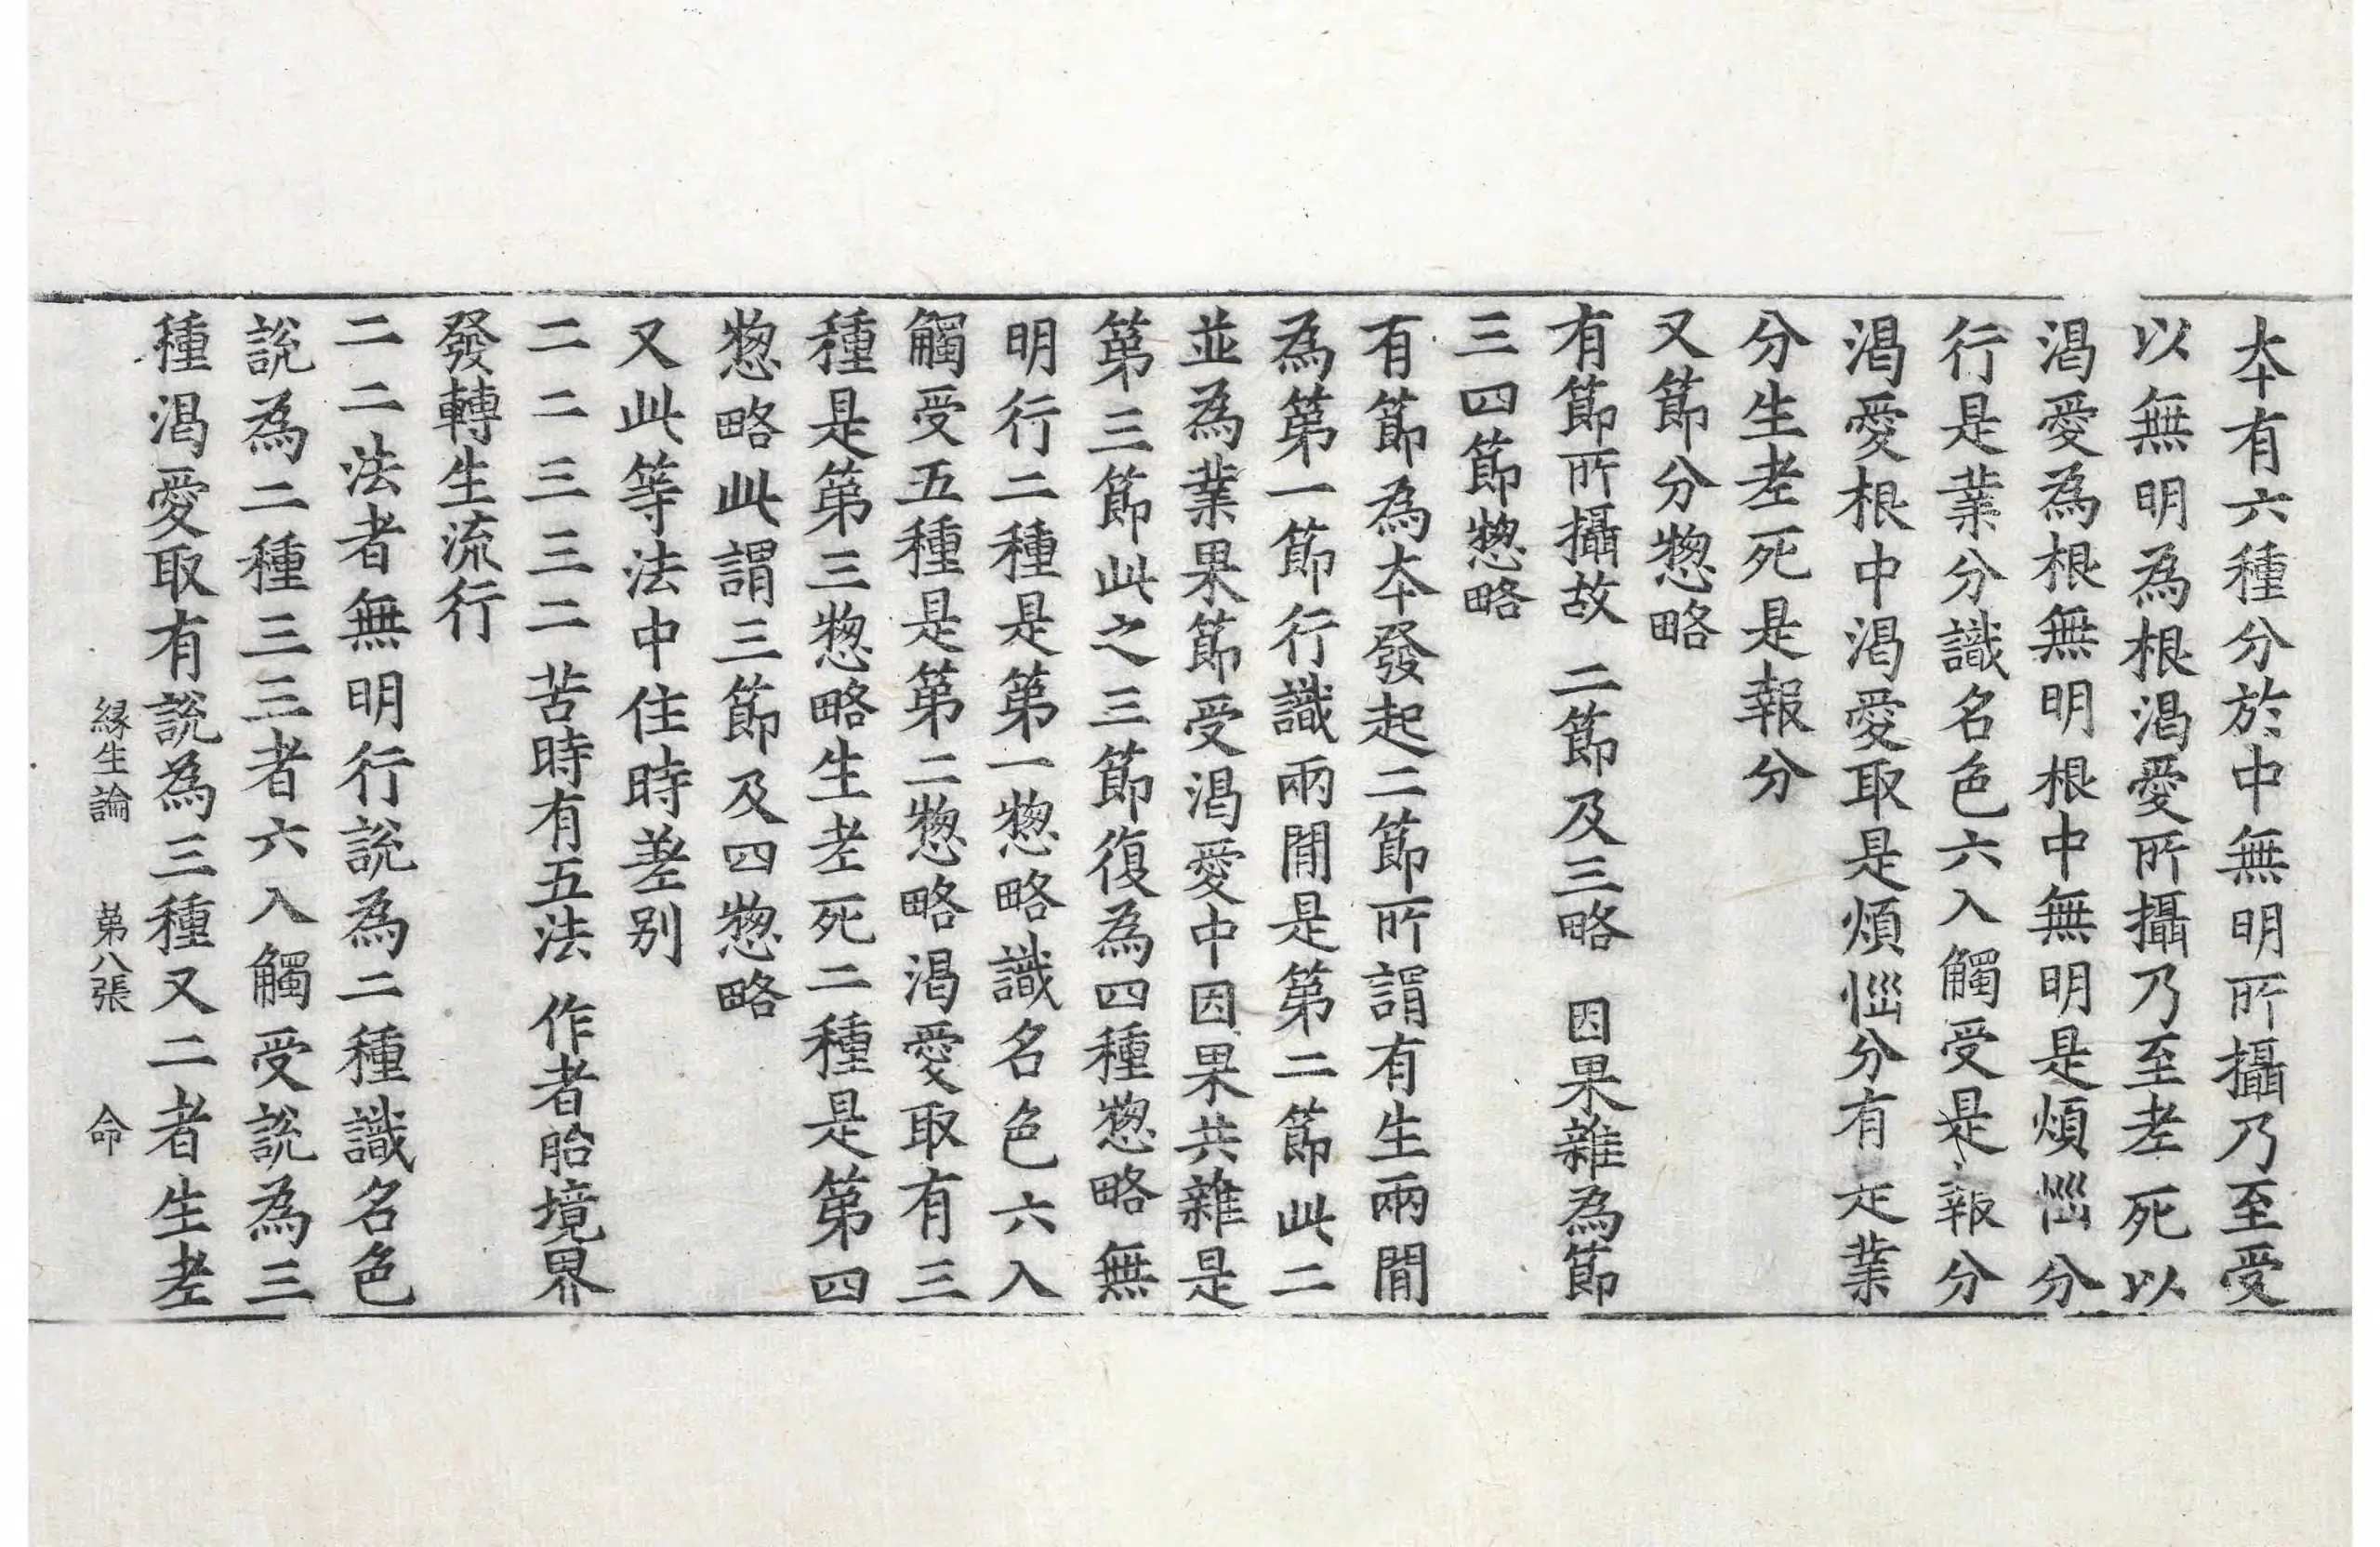 夲有六種分於中無明所攝乃至受
以無明為根渴愛所攝乃至老死以
渴愛為根無明根中無明是煩惱分
行是業分識名色六入觸受是報分
渴愛根中渴愛取是煩惱分有是業
分生老死是報分
又節分惣略
有節所攝故　二節及三略　因果雜為節
三四節惣略
有節為夲發起二節所謂有生兩間
為第一節行識兩間是第二節此二
並為業果節受渴愛中因果共雜是
第三節此之三節復為四種惣略無
明行二種是第一惣略識名色六入
觸受五種是第二惣略渴愛取有三
種是第三惣略生老死二種是第四
惣略此謂三節及四惣略
又此等法中住時差别
二二三三二　苦時有五法　作者胎境界
發轉生流行
二二法者無明行說為二種識名色
說為二種三三者六入觸受說為三
種渴愛取有說為三種又二者生老
緣生論　第八張　命